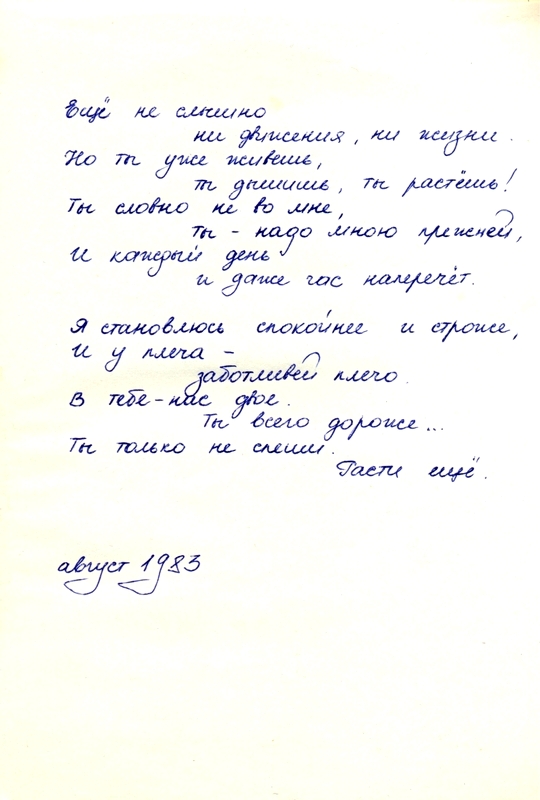 Ещё не слышно
ни движения, ни жизни.
Но ты уже живёшь,
ты дышишь, ты растёшь!
Ты словно не во мне,
ты - надо мною прежней,
И каждый день
и даже час наперечёт.
Я становлюсь спокойнее и строже,
И у плеча -
заботливей плечо.
В тебе - нас двое.
Ты всего дороже...
Ты только не спеши.
Расти ещё.
август 1983